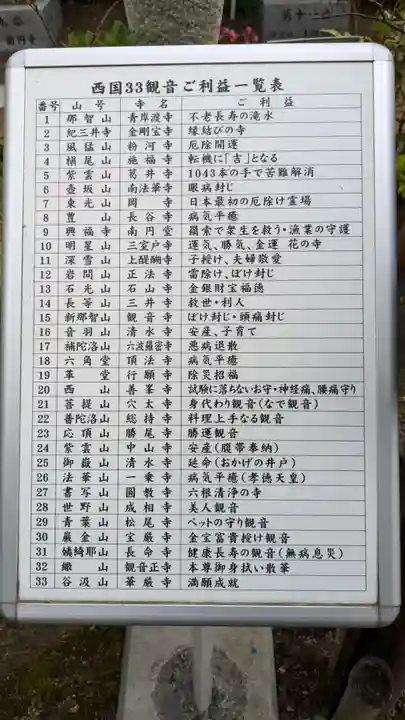 西国33観音ご利益一覧表
番号 山号 寺名 ご利益
1 那智山 青岸渡寺 不老長寿の滝水
2 紀三井寺 金剛宝寺 縁結びの寺
3 風猛山 粉河寺 厄除開運
4 槇尾山 施福寺 転機に「吉」となる
5 紫雲山 葛井寺 1043本の手で苦難解消
6 壺坂山 南法華寺 眼病封じ
7 東光山 岡寺 日本最初の厄除け霊場
8 豊山 長谷寺 病気平癒
9 興福寺 南円堂 羂索で衆生を救う・漁業の守護
10 明星山 三室戸寺 運気、勝気、金運 花の寺
11 深雪山 上醍醐寺 子授け、夫婦敬愛
12 岩間山 正法寺 雷除け、ぼけ封じ
13 石光山 石山寺 金銀財宝福徳
14 長等山 三井寺 救世・利人
15 新那智山 観音寺 ぼけ封じ・頭痛封じ
16 音羽山 清水寺 安産、子育て
17 補陀洛山 六波羅密寺 悪病退散
18 六角堂 頂法寺 病気平癒
19 革堂 行願寺 除災招福
20 西山 善峯寺 試験に落ちないお守・神経痛、腰痛守り
21 菩提山 穴太寺 身代わり観音(なで観音)
22 普陀洛山 総持寺 料理上手なる観音
23 応頂山 勝尾寺 勝運観音
24 紫雲山 中山寺 安産(腹帯奉納)
25 御嶽山 清水寺 延命(おかげの井戸)
26 法華山 一乗寺 病気平癒(孝徳天皇)
27 書写山 圓教寺 六根清浄の寺
28 世野山 成相寺 美人観音
29 青葉山 松尾寺 ペットの守り観音
30 巌金山 宝厳寺 金宝富貴授け観音
31 姨綺耶山 長命寺 健康長寿の観音(無病息災)
32 繖山 観音正寺 本尊御身拭い散華
33 谷汲山 華厳寺 満願成就